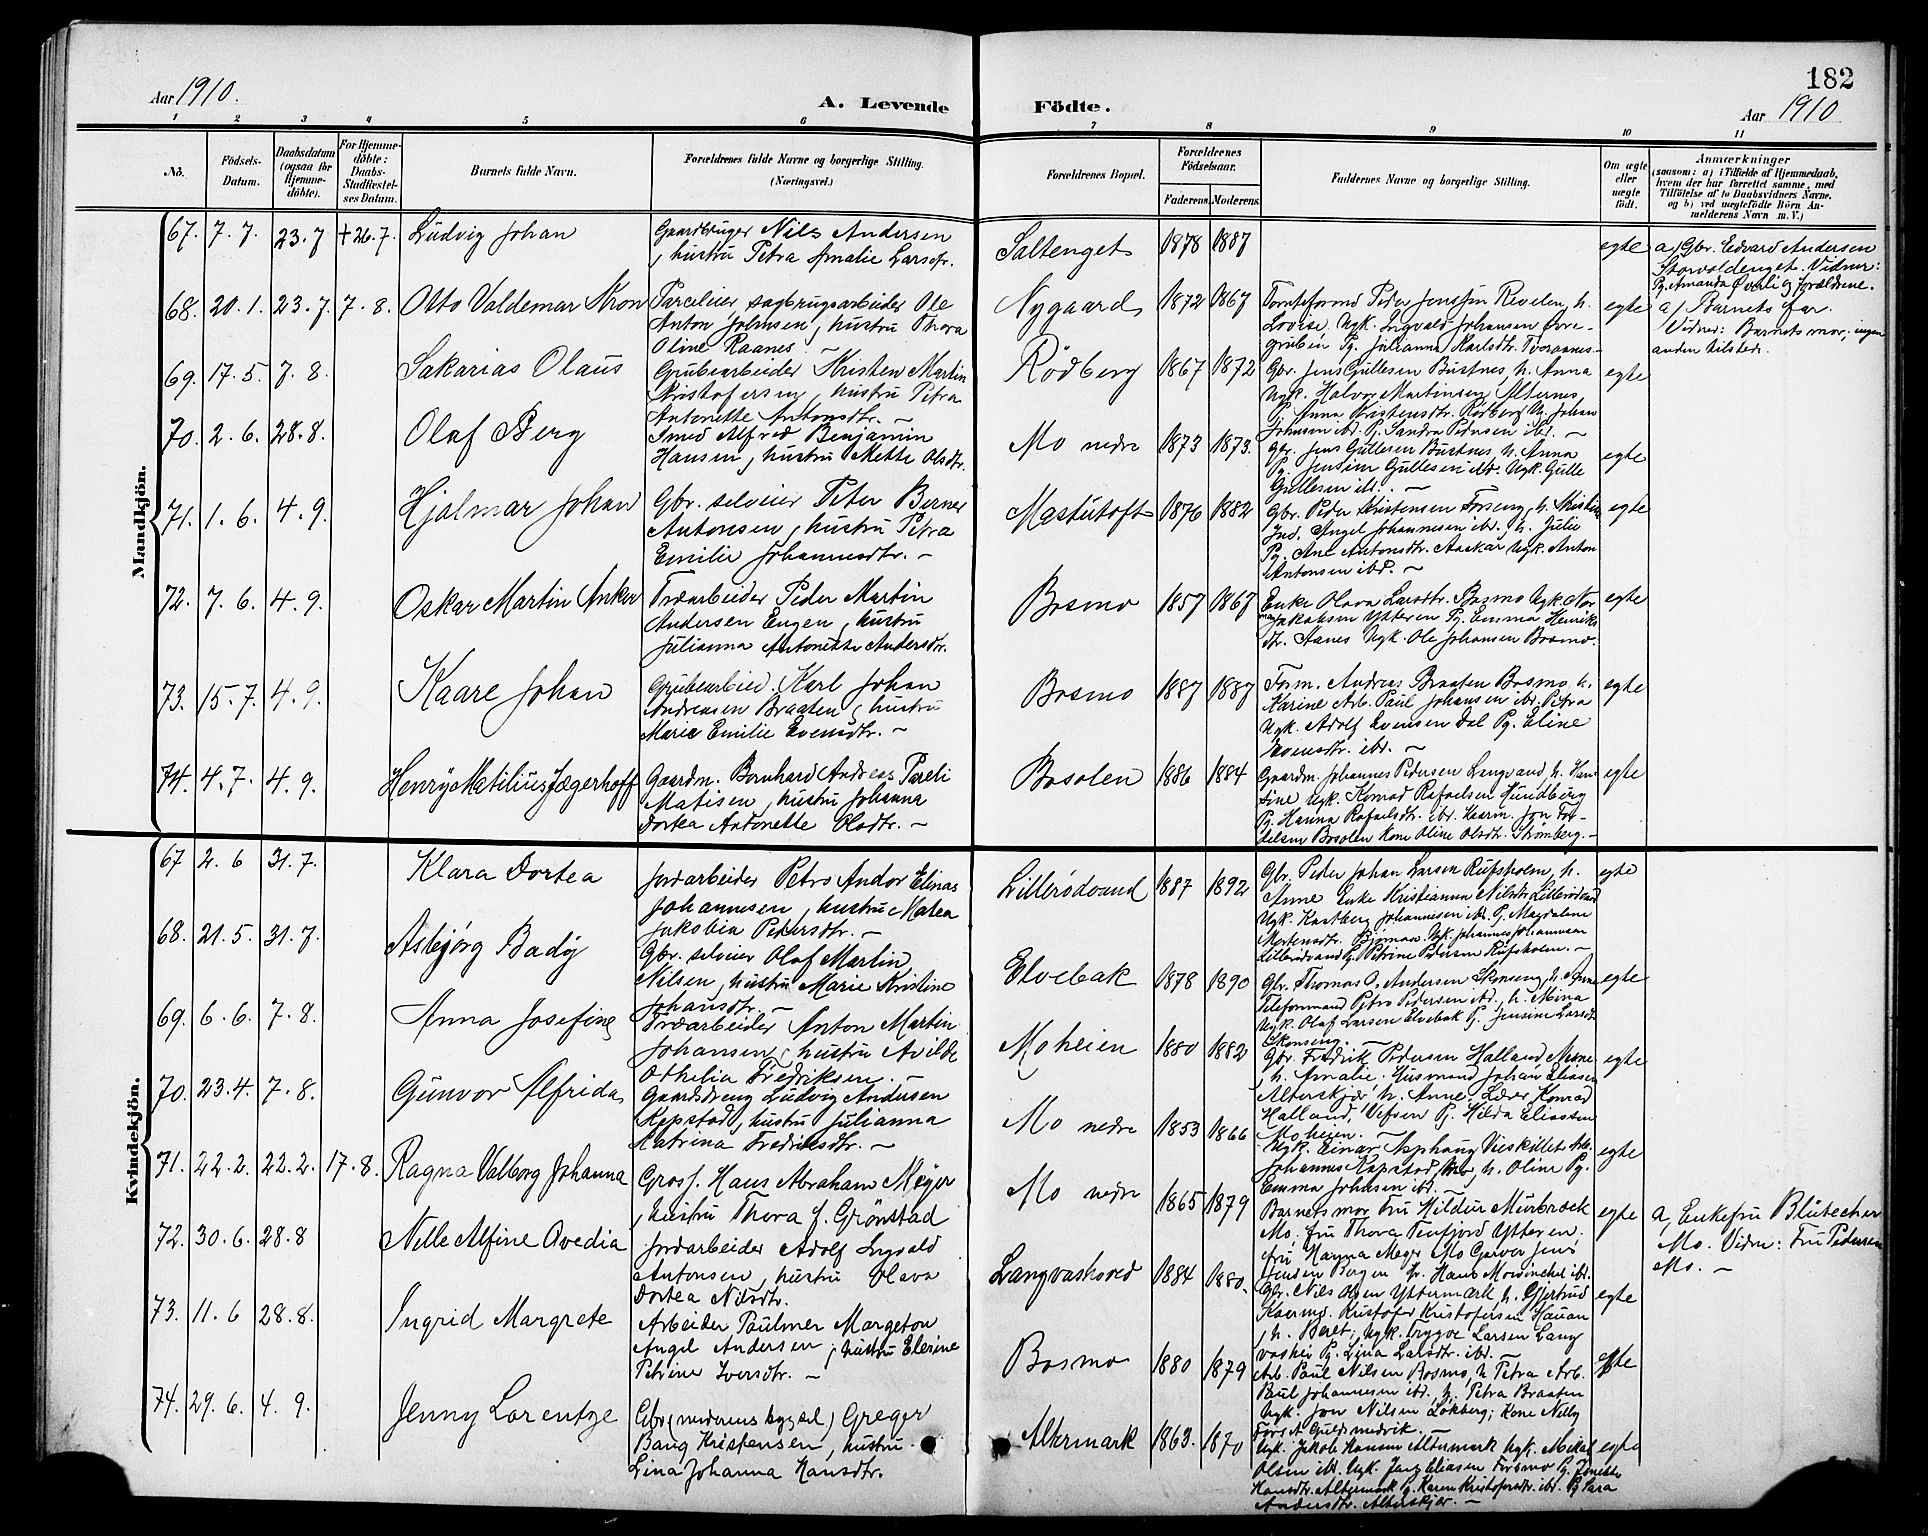 Aar 1910.
A. Levende
Födte.
182
Aar 1910.
1 2 3 4 5 6 7 8 9 10 11
No.
Födsels-
Datum.
Daabsdatum
(ogsaa for
Hjemme-
döbte).
For Hjemme-
döbte:
Daabs-
Stadfæstel-
ses Datum.
Barnets fulde Navn.
Forældrenes fulde Navne og borgerlige Stilling.
(Næringsvei.)
Forældrenes Bopæl.
Forældrenes
Födselsaar.
Faderens.
Moderens.
Faddernes Navne og borgerlige Stilling.
Om ægte
eller
uægte
födt.
Anmærkninger
(saasom: a) i Tilfælde af Hjemmedaab,
hvem der har forrettet samme, med
Tilföielse af to Daabsvidners Navne.
og b) ved uægtefödte Börn An-
melderens Navn m. V.)
Mandkjön.
67. 7.7. 23.7 +26.7. Ludvig Johan
Gaardbruger Nils Andersen
, hustru Petra Amalie Larsdr.
Saltenget 1878 1887 egte
a) Gbr. Edvard Andersen
Storvoldenget. Vidner:
Pg. Amanda Øverli og Forældrene.
68. 20.1. 23.7. 7.8. Otto Valdemar Kron
Parceleier sagbrugsarbeider Ole
Anton Johnsen, hustru Thora
Oline Raanes.
Nygaard 1872 1867
Tomteformd Peder Jenssen Revelen, h.
Lovise. Ugk. Ingvald Johansen Øvre-
gruben Pg. Julianna Karlsdtr. Tveraanes-
egte
a) Barnets far.
Vidner: Barnets mor, ingen
anden tilstede.
69. 17.5. 7.8. Sakarias Olaus
Grubearbeider Kristen Martin
Kristofersen, hustru Petra
Antonette Antonsdtr. -
Rödberg 1867 1872
Gbr. Jens Gullesen Bustnes, h. Anna
Ugk. Halvor Martinsen Alternes,
Pg. Anna Kristensdtr. Rödberg Uk. Johan
Johnsen ibd. Pg. Sandra Pedersen ibd. -
egte
70. 2.6. 28.8. Olaf Berg
Smed Alfred Benjamin
Hansen, hustru Mette Olsdtr.
Mo nedre 1873 1873.
Gbr. Jens Gullesen Bustnes, h. Anna
Pg. Jensine Gullesen ibd. Ugk. Gulle
Gullesen ibd. -
egte
71. 1.6. 4.9. Hjalmar Johan
Gbr. selveier Peter Berner
Antonsen, hustru Petra
Emilie Johannesdtr. -
Mastutoft 1876 1882
Gbr. Peder Kristensen Forseng, h. Kristine
Ind. Angel Johannesen ibd. h. Julie
Pg. Ane Antonsdtr. Aaskar Ugk. Anton
Antonsen ibd. -
egte
72. 7.6. 4.9. Oskar Martin Anker
Træarbeider Peder Martin
Andersen Engen, hustru
Julianna Antonette Andersdtr.
Bosmo 1857 1867
Enke Olava Larsdtr. Bosmo Ugk.
Jakobsen Ytteren Pg. Emma Henriks
dtr. Hanes Ugk. Ole Johansen Bosmo.
egte
73. 15.7. 4.9. Kaare Johan
Grubearbeid. Karl Johan
Andreasen Braaten, hustru
Marie Emilie Evensdtr. -
Bosmo 1887 1887
Form. Andreas Braaten Bosmo, h.
Karine Arb. Paul Johansen ibd. Petra
Ugk. Adolf Evensen Dal Pg. Eline
Evensdtr. ibd. -
egte
74. 4.7. 4.9. Henry Matilius Jægerhoff
Gaardm. Bernhard Andreas Pareli
Matisen, hustru Johanna
Dortea Antonette Olsdtr. -
Bosolen 1886 1884
Gaardm. Johannes Pedersen Langvand, h. Han
sine Ugk. Konrad Rafaelsen Hundberg
Pg. Hanna Rafaelsdtr. ibd. Husm. Jon Tor-
Bosolen Kone Oline Olsdtr. Strømberg. -
egte
Kvindekjön.
67 2.6 31.7. Klara Dortea
Jordarbeider Petro Andor Elinas
Johannesen, hustru Matea
Jakobia Pedersdtr. -
Lillerödvand 1887 1892
Gbr. Peder Johan Larsen Rufsholm, h.
Anne Enke Kristianna Nilsdtr. Lillerödvand
Ugk. Hartberg Johannesen ibd. Pg. Magdalene
Mortensdtr. Ugk. Johannes Johannesen
Lillerödvand Pg. Petrine Pedersen Rufsholm. -
egte
68. 21.5. 31.7. Asbjørg Bady
Gbr. selveier Olaf Martin
Nilsen, hustru Marie Kristine
Johansdtr. -
Elvebak 1878 1890
Gbr. Thomas O. Andersen Skonseng, h. Anne
Telefonmand Petro Pedersen ibd., h. Mina
Ugk. Olaf Larsen Elvebak Pg. Jensine Larsdtr
Skonseng. -
egte
69. 6.6. 7.8. Anna Josefine
Træarbeider Anton Martin
Johansen, hustru Avilde
Othelia Fredriksen. -
Moheien 1880 1882
Gbr. Fredrik Pedersen Halland, Mone
, h. Amalie. Husmand Johan Eliasen
Alterskjær, h. Anne Lærer Konrad
Halland, Vefsen Pg. Hilda Eliassen
Moheien. -
egte
70. 23.4. 7.8. Gunvor Alfrida
Gaardsdreng Ludvig Andersen
Kepstad, hustru Julianna
Katrina Fredriksdtr. -
Mo nedre 1853 1866
Ugk. Einar Asphaug Veiskillet Arb.
Johannes Kapstad, Mo, h. Oline Pg.
Emma Johnsen ibd. -
egte
71. 22.2. 22.2. 17.8. Ragna Valborg Johanna
Gross. Hans Abraham Meyer
, hustru Thora f. Grønstad
Mo nedre 1865 1879
Barnets mor Fru Hildur Murbræck
Mo. fru Thora Tenfjord Ytteren.
fru Hanna Meyer Mo Garver Jens
Jensen Bergen Hr. Hans Mowinckel ibd.
egte
a, Enkefru Blütecher
Mo. Vidne: Fru Pedersen
Mo. -
72. 30.6. 28.8 Nelle Alfine Ovedia
Jordarbeider Adolf Ingvald
Antonsen, hustru Olava
Dortea Nilsdtr.
Langvashved 1884 1880.
Gbr. Nils Olsen Yttermark h. Gjertrud
Kaarmd. Kristofer Kristofersen Hauan
, h. Beret, Ugk. Trygve Larsen Lang
vashei Pg. Lina Larsdtr. ibd. -
egte
73. 11.6 28.8. Ingrid Margrete
Arbeider Paulmer Margeton
Angel Andersen, hustru Elerine
Petrine Iversdtr. -
Bosmo 1880 1879
Arb. Paul Nilsen Bosmo, h. Petra Arb.
Paul Johannesen ibd., h. Petra Braaten
Ugk. Jon Nilsen Løkberg; Kone Nelly
egte
74. 29.6. 4.9. Jenny Lorentze
Gbr. (moderens bygsel) Greger
Bang Kristensen, hustru
Lina Johanna Hansdtr.
Altermark 1863. 1870
Ugk. Jakob Hansen Altermark Ugk. Mikal
Olsen ibd. Ugk. Jens Eliasen Forsmo Pg. Jonette
Hansdtr. Altermark Pg. Karen Kristofersdtr. ibd. Pg Sara
Andersdtr. Alterskjær. -
egte